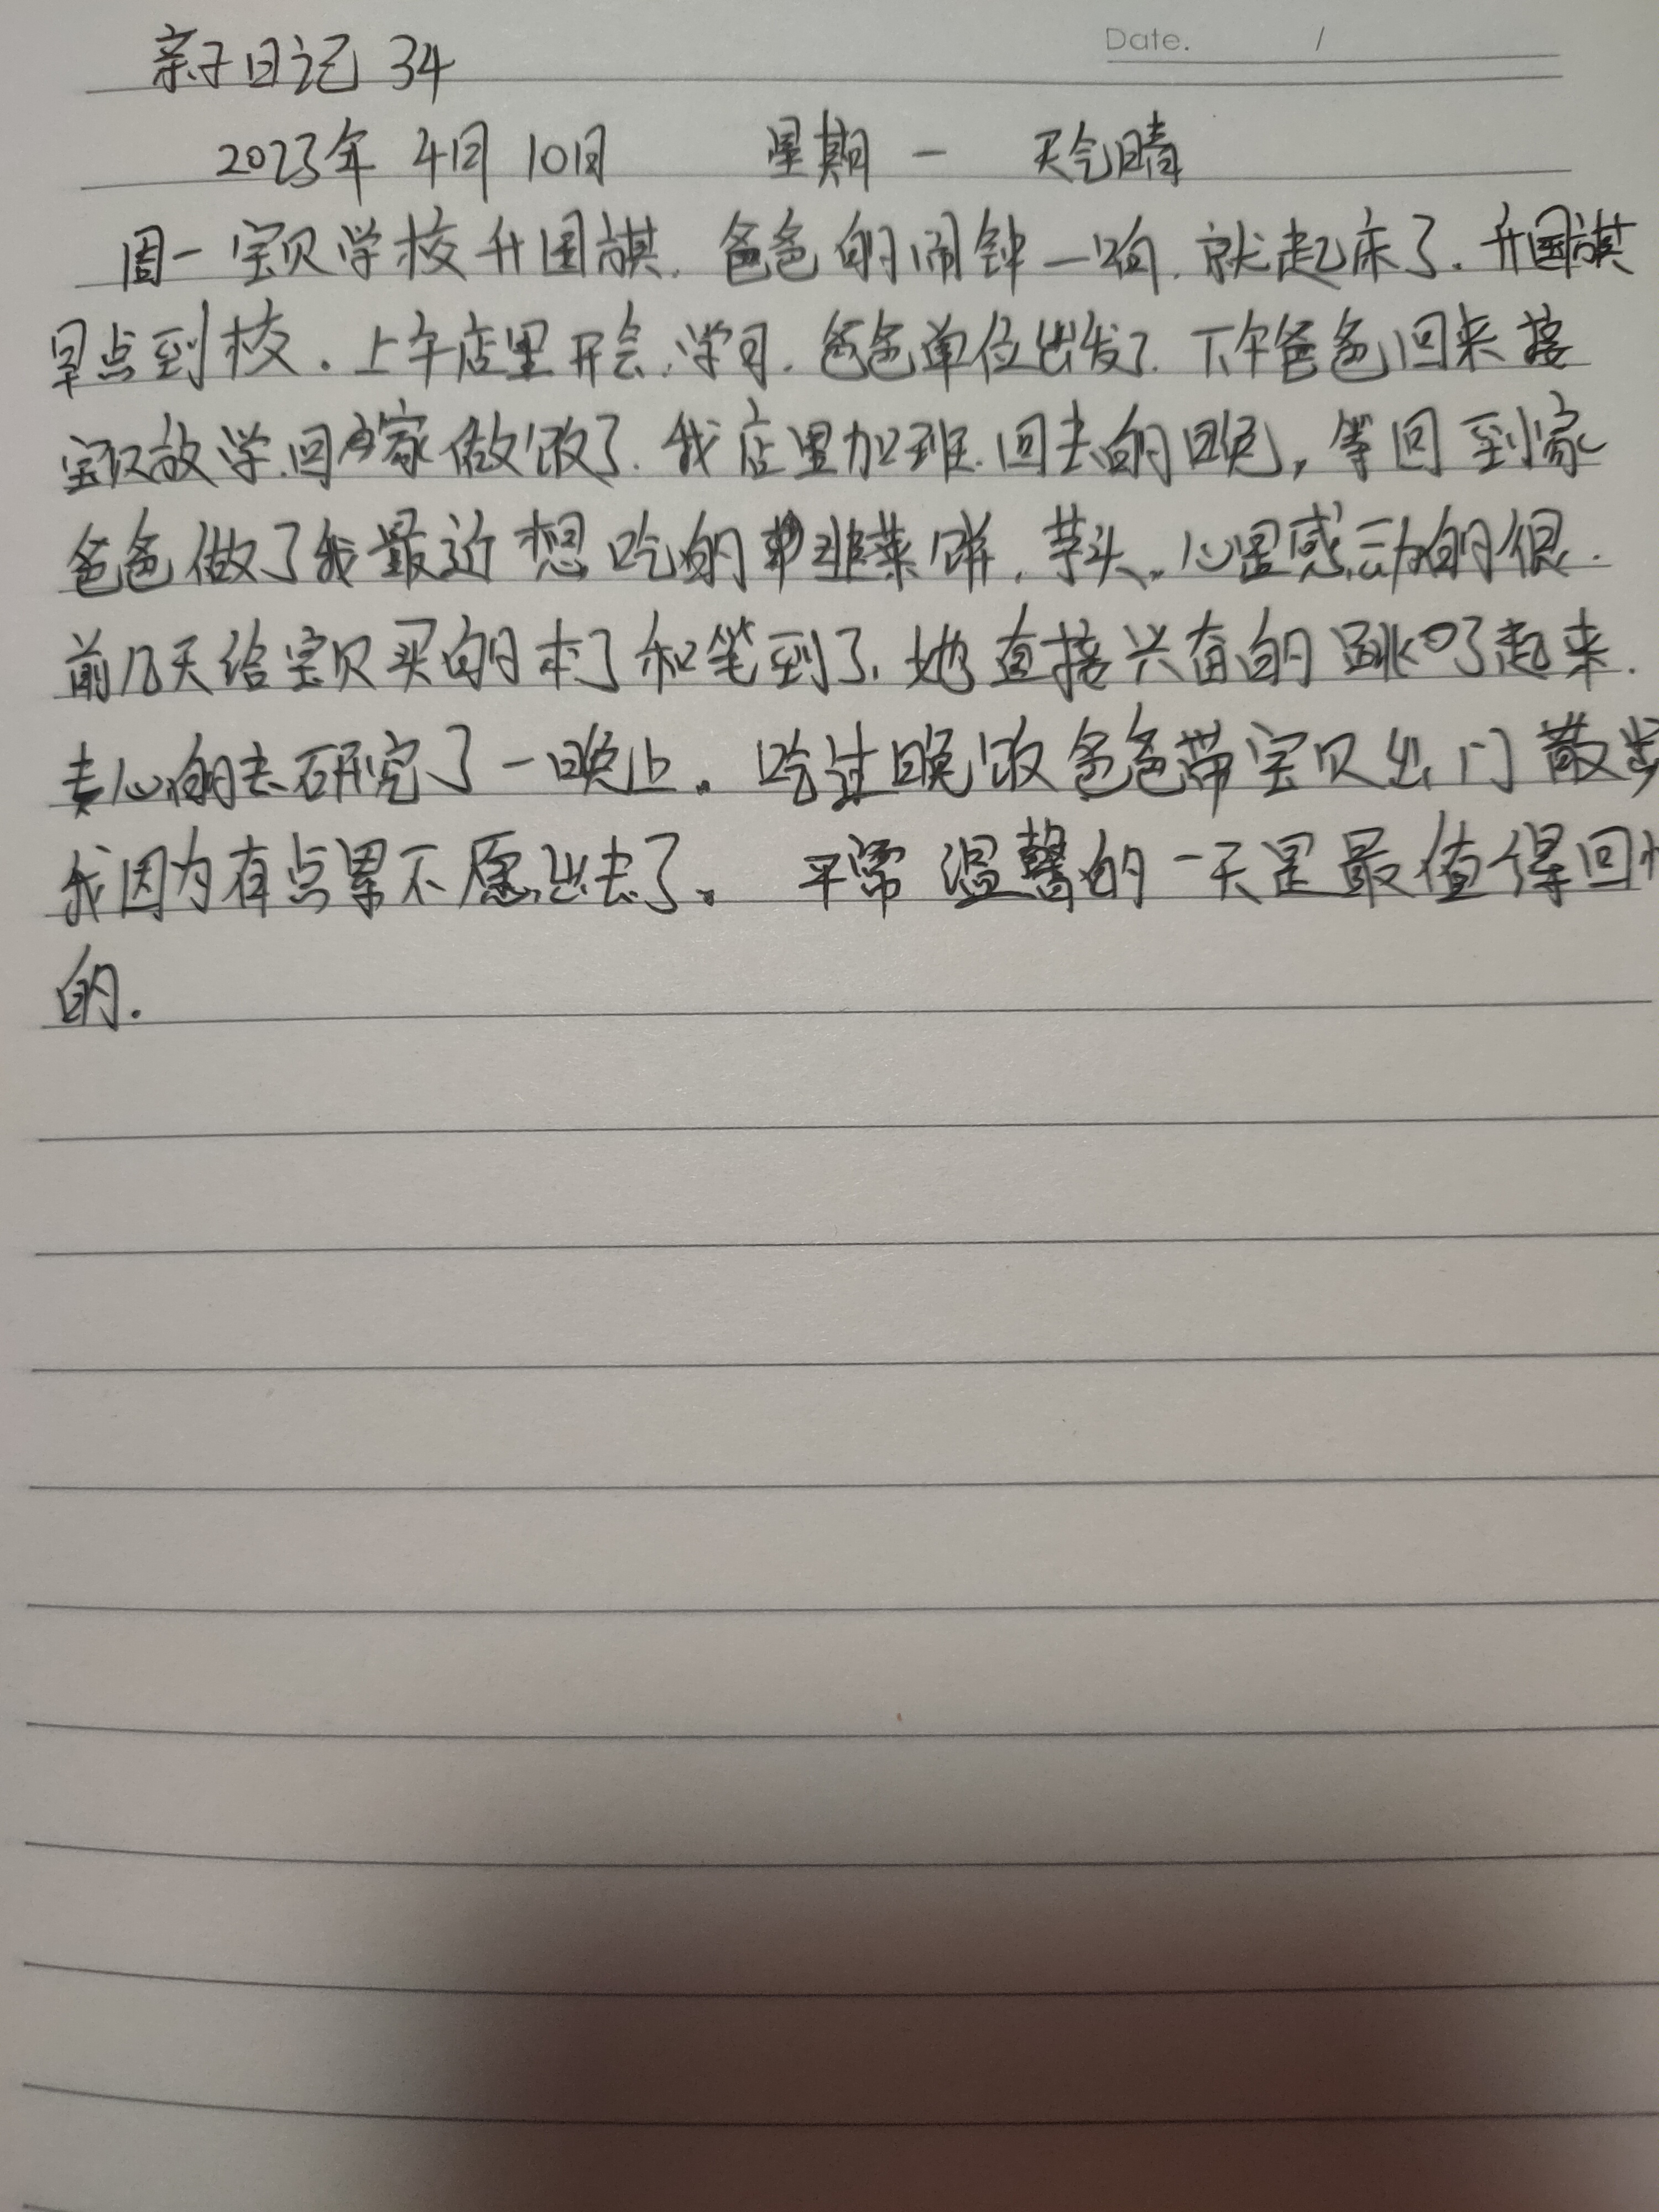 Date. /
亲子日记 34
2023年 4月 10日 星期一 天气晴
周一宝贝学校升国旗. 爸爸的闹钟一响. 就起床了. 升国旗
早点到校. 上午店里开会. 学习. 爸爸单位出发了. 下午爸爸回来接
宝贝放学. 回家做饭了. 我店里加班. 回去的晚, 等回到家
爸爸做了我最近想吃的韭菜饼. 芋头. 心里感动的很.
前几天给宝贝买的本子和笔到了. 她直接兴奋的跳了起来.
专心的去研究了一晚上. 吃过晚饭爸爸带宝贝出门散步
我因为有点累不愿出去了. 平常温馨的一天是最值得回
的.